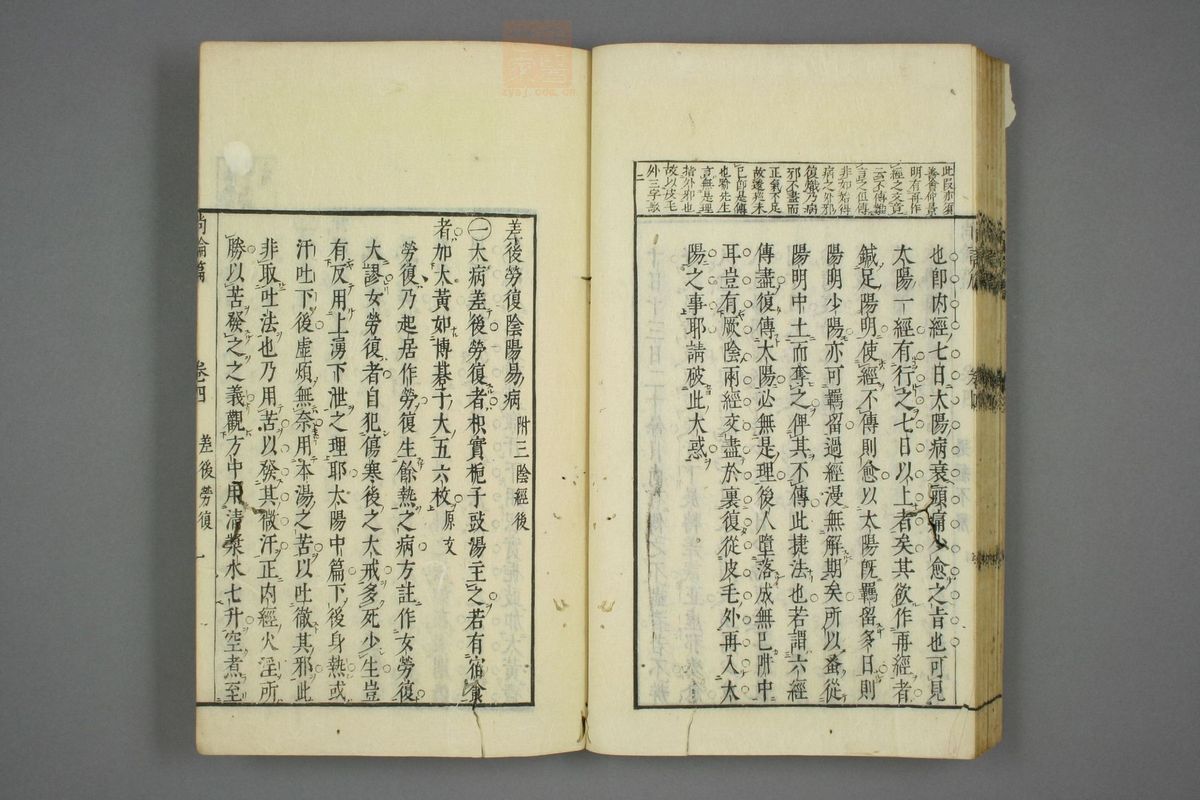 此段亦須
善會仲景
明有再作
經之文豈
云不傳離
言之但傳
非如始得
病之外邪
復熾乃病
邪不盡而
正氣不足
故邊與未
已即是傳
也喻先生
言無是理
指外邪也
故以皮毛
外三字詠
也卽内經七日太陽病衰頭痛少愈之旨也可見
太陽一經有行之七日以上者矣其欲作再經者
鍼足陽明使經不傳則愈以太陽旣羈留多日則
陽明少陽亦可羈留過經漫無解期矣所以蚤從
陽明中土而奪之俾其不傳此捷法也若謂六經
傳盡復傳太陽必無是理後人墮落成無已阱中
耳豈有厥陰兩經交盡於裏復從皮毛外再入太
陽之事耶請破此大惑
差後勞復陰陽易病 附三陰經後
㊀大病差後勞復者枳實梔子豉湯主之若有宿食
者加大黃如博碁子大五六枚 原文
勞復乃起居作勞復生餘熱之病方註作女勞復
大謬女勞復者自犯傷寒後之大戒多死少生豈
有反用上湧下泄之理耶太陽中篇下後身熱或
汗吐下後虛煩無奈用本湯之苦以吐徹其邪此
非取吐法也乃用苦以發其微汗正内經火淫所
勝以苦發之之義觀方中用清漿水七升空煮至
尚論篇 卷四 差後勞復 一